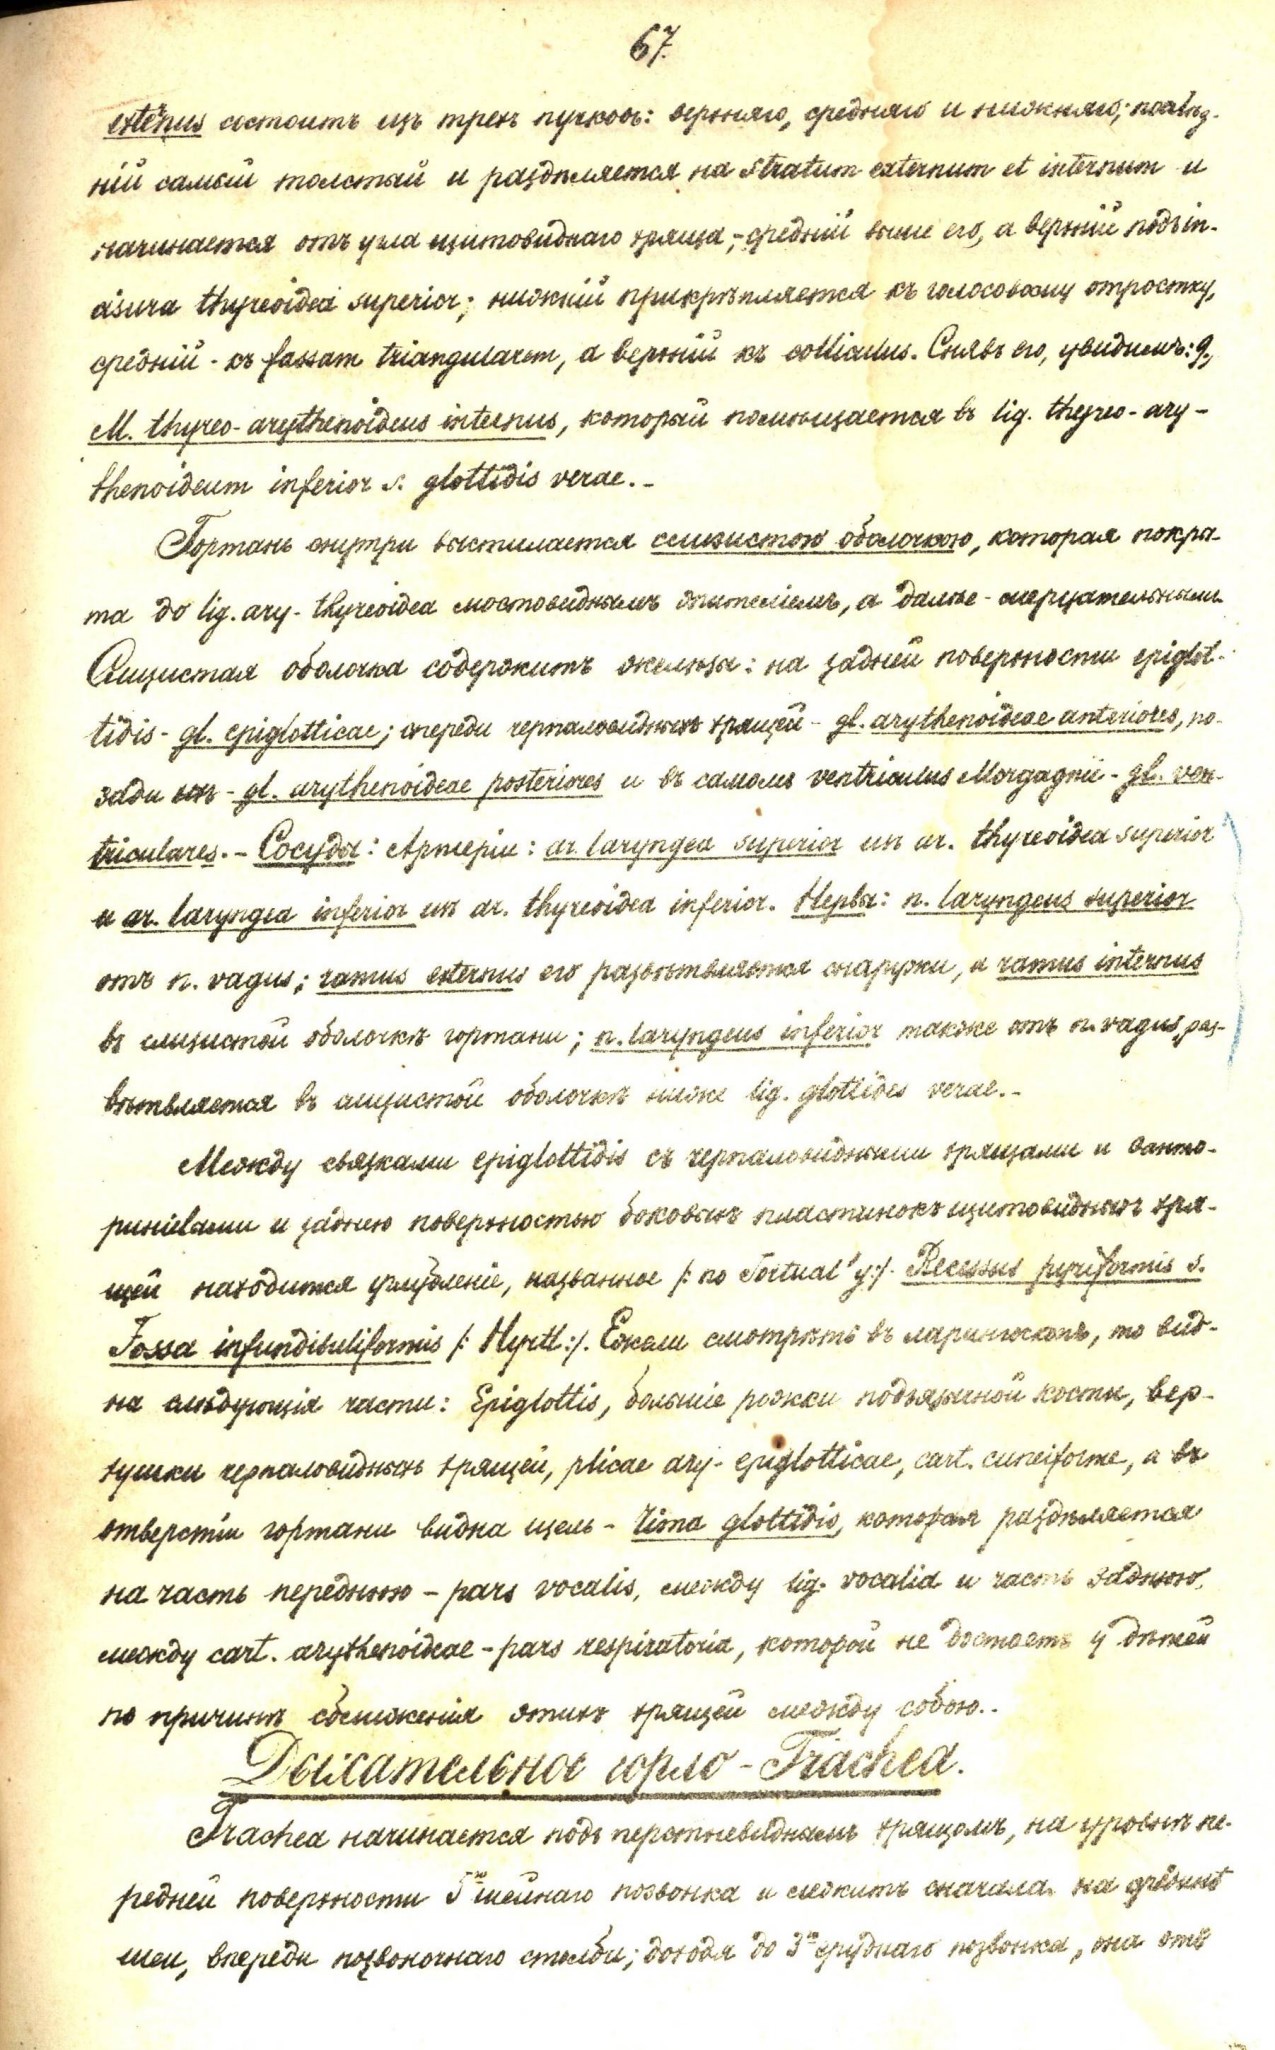 67.
extenus состоитъ изъ трехъ пучковъ: верхняго, средняго и нижняго; послѣд-
ній самый толстый и раздѣляется на stratum externum et internum и
начинается отъ угла щитовиднаго хряща,- средній выше его, а верхній подъ in-
cisura thyreoidea superior; нижній прикрѣпляется къ голосовому отростку,
средній - къ fossam triangularem, а верхній къ colliculus. Снявъ его, увидимъ: 9,
M. thyreo-arythenoideus internus, который помѣщается въ lig. thyreo-ary-
thenoideum inferior s. glottidis verae.-
Гортань внутри выстилается слизистою оболочкою, которая покры-
та до lig. ary-thyreoidea мостовиднымъ эпителіемъ, а далѣе - мерцательнымъ.
Слизистая оболочка содержитъ железы: на задней поверхности epiglot-
tidis - gl. epiglotticae; спереди черпаловидныхъ хрящей - gl. arythenoideae anteriores, по-
зади ихъ - gl. arythenoideae posteriores и въ самомъ ventriculus Morgagnii - gl. ven-
triculares. - Сосуды: Артеріи: ar. laryngea superior изъ ar. thyreoidea superior
и ar. laryngea inferior изъ ar. thyreoidea inferior. Нервы: n. laryngeus superior
отъ n. vagus; ramus externus его развѣтвляется снаружи, а ramus internus
въ слизистой оболочкѣ гортани; n. laryngeus inferior также отъ n. vagus, раз-
вѣтвляется въ слизистой оболочкѣ ниже lig. glottides verae.-
Между связками epiglottidis съ черпаловидными хрящами и санто-
риніевыми и заднею поверхностью боковыхъ пластинокъ щитовидныхъ хря-
щей находится углубленіе, названное /: по Tortual'у:/. Recessus pyriformis s.
Fossa infundibuliformis /: Hyrtl:/. Ежели смотрѣть въ ларингоскопъ, то вид-
на слѣдующія части: Epiglottis, большіе рожки подъязычной кости, вер-
хушки черпаловидныхъ хрящей, plicae ary-epiglotticae, cart. cuneiforme, а въ
отверстіи гортани видна щель - rima glottidis, которая раздѣляется
на часть переднюю - pars vocalis, между lig. vocalia и часть заднюю,
между cart. arythenoideae - pars respiratoria, которой не достаетъ у дѣтей
по причинѣ сближенія этихъ хрящей между собою.-
Дыхательное горло - Trachea.
Trachea начинается подъ перстневиднымъ хрящомъ, на уровнѣ пе-
редней поверхности 5го шейнаго позвонка и лежитъ сначала на срединѣ
шеи, впереди позвоночнаго столба; доходя до 3го груднаго позвонка, она отъ